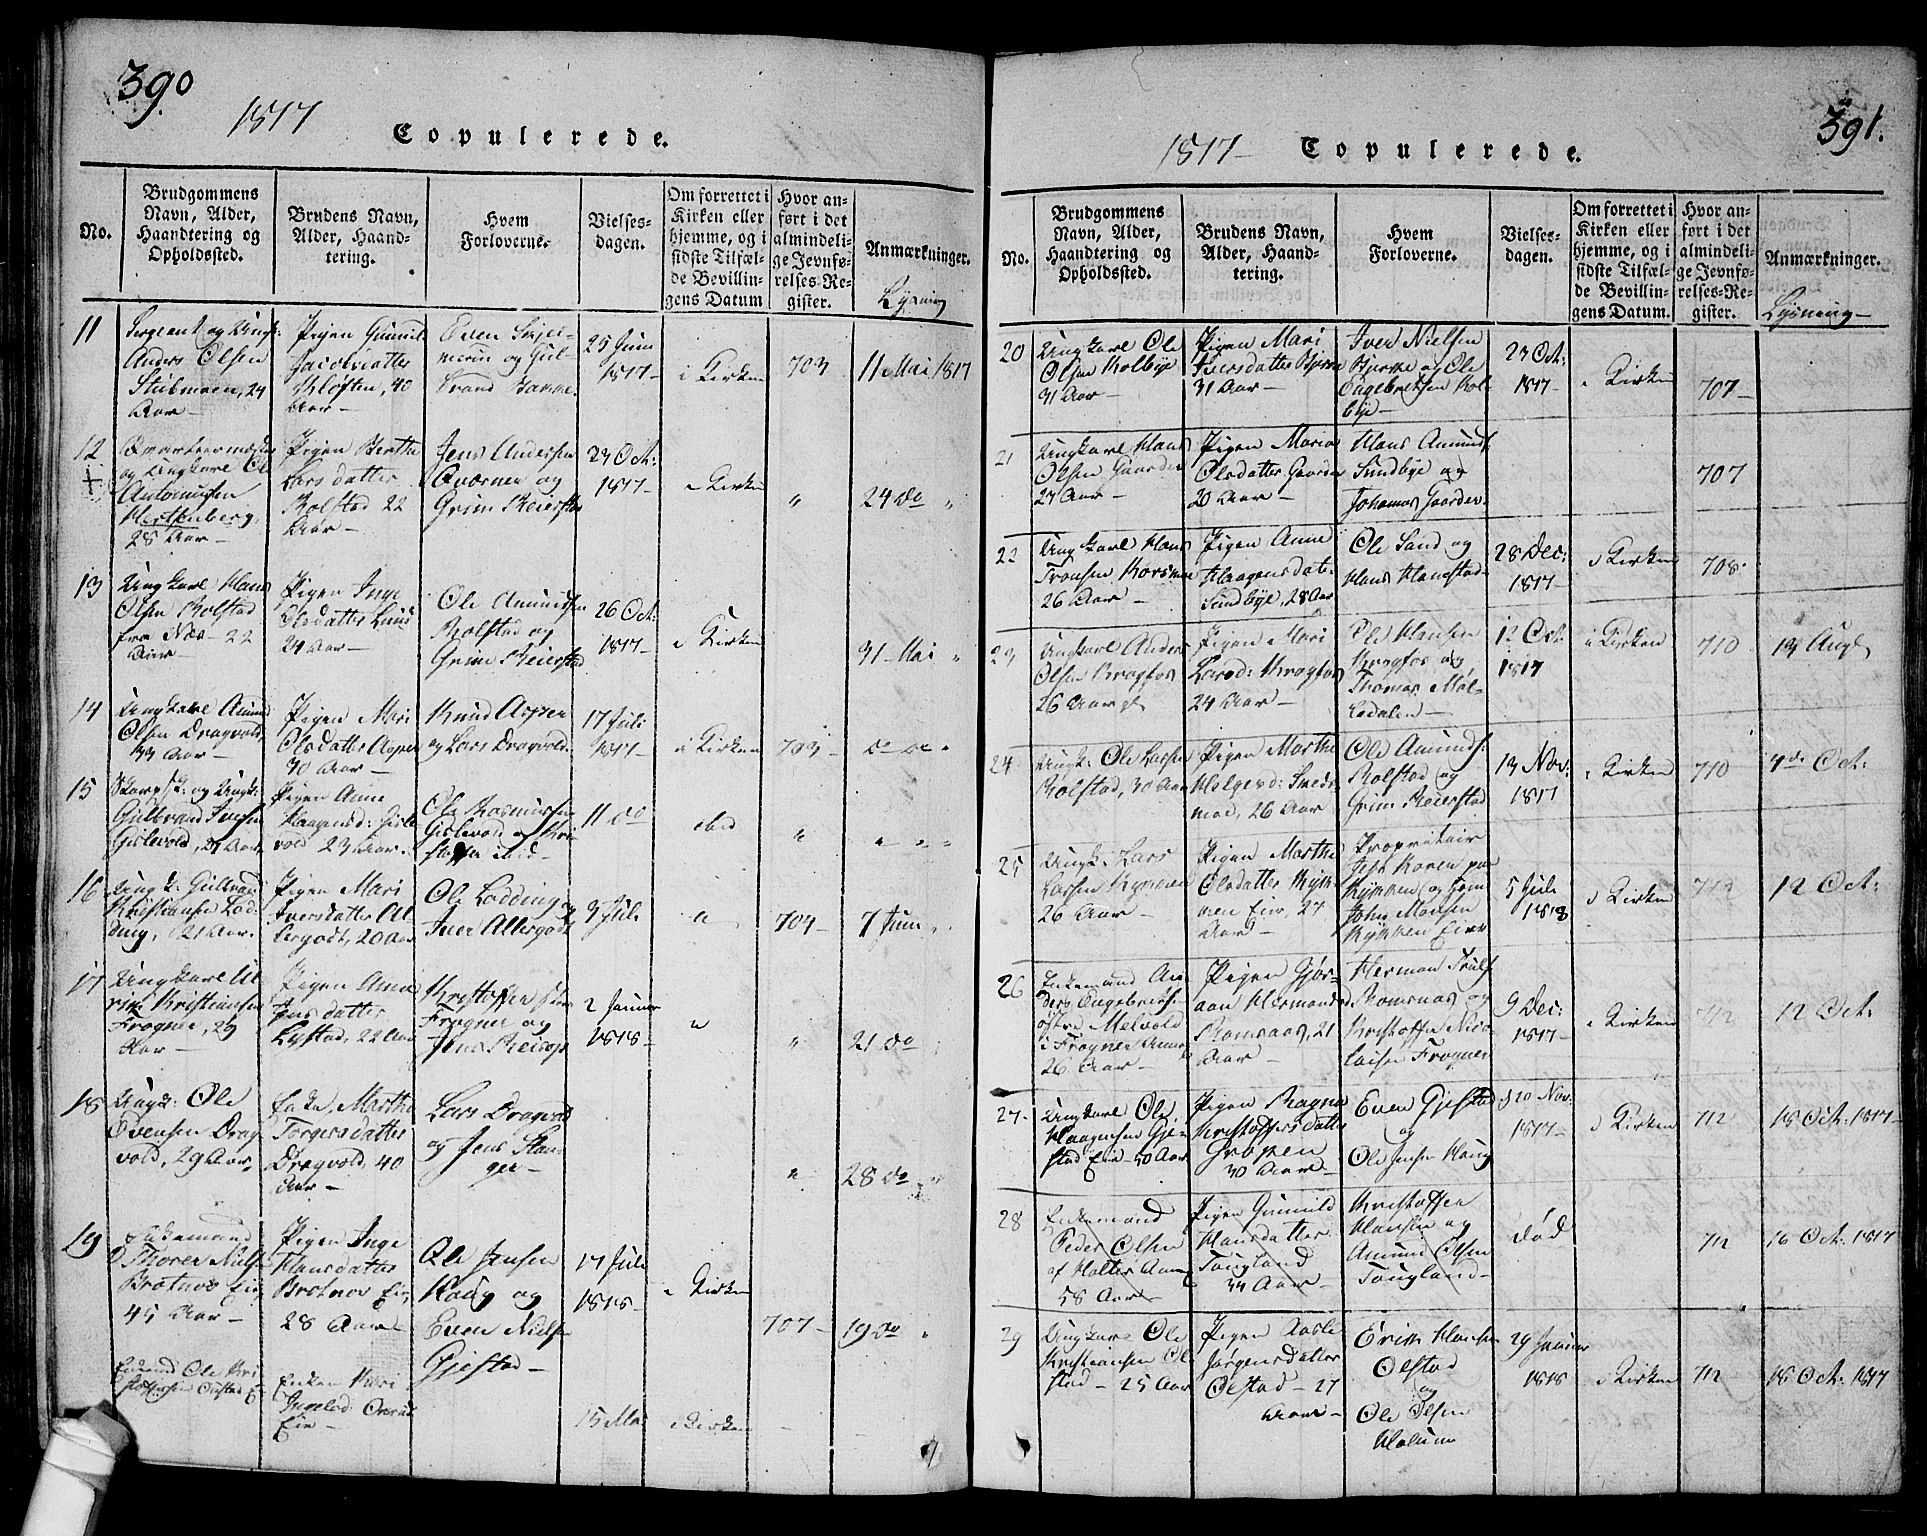 390
1817
Copulerede.
No.
Brudgommens
Navn, Alder,
Haandtering og
Opholdssted.
Brudens Navn,
Alder, Haand-
tering.
Hvem
Forloverne.
Vielses-
dagen.
Om forrettet i
Kirken eller
hjemme, og i
sidste Tilfæl-
de Bevillin-
gens Datum
Hvor an-
ført i det
almindeli-
ge Jevnfø-
relses-Re-
gister.
Anmærkninger.
Lysning
11
Sergeant og Ungk:
Anders Olsen
24
Aar
Pigen Gunnil
Jacobsdatter
Kløften, 40
Aar
Even Skjel-
og Gul-
brand
25 Juni
1817
i Kirken
703
11 Mai 1817
12
og Ungkarl Ol
28 Aar
Pigen Berthe
Larsdatter
Rolstad 22
Aar
Jens Andersen
Qværner og
Grim Reierstad
23 Oct:
1817
i Kirken
"
24 do "
13
Ungkarl Hans
Olsen Rolstad
fra Næs 22
Aar
Pigen Inge
Olsdatter Lund
24 Aar
Ole Amundsen
Rolstad og
Grim Reierstad
26 Oct:
1817
i Kirken
31 Mai "
14
Ungkarl Amund
Olsen Dragvold
33 Aar
Pigen Mari
Olsdatter Asper
30 Aar
Knud Asper
og Lars Dragvold
17 Juli
1817
i Kirken
703
do do "
15
og Ungk:
Gulbrand Iversen
Gislevold, 27 Aar
Pigen Anne
Haagensd: Gisle-
vold 23 Aar
Ole Rasmussen
Gislevold og Kri-
stoffer ibid
11 do
ibid
"
" " "
16
Ungk: Gulbrand
Kristiansen Lød-
ding, 21 Aar
Pigen Mari
Iversdatter Al-
lergodt, 20 Aar
Ole Lødding og
Iver Allergodt
3 Juli
"
704
7 Juni "
17
Ungkarl Ul-
rik Kristiansen
Frogner, 29
Aar
Pigen Anne
Jensdatter
Lystad, 22 Aar
Kristoffer
Frogner og
Jens
2 Januar
1818
"
"
21 do
18
Ungk: Ole
Evensen Drag-
vold, 29 Aar
Enke Marthe
Torgersdatter
Dragvold, 40
Aar
Lars Dragvold
og Jens Stan-
ger
"
28 do "
19
Enkemand
Thorer Niels:
Brotnov Eie,
45 Aar
Pigen Inge
Hansdatter
Brotnov Eie,
28 Aar
Ole Jensen
Haug og
Even Niels:
Gjestad
17 Juli
1818
i Kirken
707
19 do "
Enkemand Ole Kri-
stoffersen
Enken Kari
Eie
15 Mai
i Kirken
391.
1817
Copulerede.
No.
Brudgommens
Navn, Alder,
Haandtering og
Opholdssted.
Brudens Navn,
Alder, Haand-
tering.
Hvem
Forloverne.
Vielses-
dagen.
Om forrettet i
Kirken eller
hjemme, og i
sidste Tilfæl-
de Bevillin-
gens Datum.
Hvor an-
ført i det
almindeli-
ge Jevnfø-
relses-Re-
gister.
Anmærkninger.
Lysning
20
Ungkarl Ole
Olsen Kolbye
31 Aar
Pigen Mari
Iversdatter Bjerke
31 Aar
Iver Nielsen
Bjerke og Ole
Engebretsen Kol-
bye
23 Oct:
1817
i Kirken
707
21
Ungkarl Hans
Olsen Gaarder
27 Aar
Pigen Maria
Olsdatter Gaarder
20 Aar
Hans Amunds:
Sundbye og
Johannes Gaarder
707
22
Ungkarl Hans
Tronsen Korsmoe
26 Aar
Pigen Anne
Haagensdatt:
Sundbye, 28 Aar
Ole Sand og
Hans Hangstad
28 Dec:
1817
i Kirken
708
23
Ungkarl Anders
Olsen Krogfos
26 Aar
Pigen Mari
Larsd: Krogfos
24 Aar
Ole Hansen
Krogfos og
Thomas Mol-
ledalen
12 Oct:
1817
i Kirken
710
13 Aug
24
Ungk: Ole Larsen
Rolstad, 30 Aar
Pigen Marthe
Helgesd: Smeds-
moe, 26 Aar
Ole Amunds:
Rolstad og
Grim Reierstad
13 Nov:
1817
i Kirken
710
4de Oct:
25
Ungk: Lars
Larsen Kykken
26 Aar
Pigen Marthe
Olsdatter Kyk-
ken Eie, 27
Aar
Proprietair
Jess Koren paa
Kykken og
John Monsen
Kykken Eie
5 Juli
1818
i Kirken
712
12 Oct:
26
Enkemand An-
ders Engebretsen
østre Melvold
i Frogner Annex
26 Aar
Pigen Gjør-
aan Hermands:
Romsaas, 21
Aar
Herman Truls:
Romsaas og
Kristoffer Nico-
laisen Frogner
9 Dec:
1817
i Kirken
712
12 Oct:
27
Ungkarl Ole
Haagensen Gje-
stad Eie 30 Aar
Pigen Ragne
Kristoffersdatter
Gropen
30 Aar
Even Gjestad
og
Ole Jensen Haug
20 Nov.
1817
i Kirken
712
18 Oct: 1817
28
Enkemand
Peder Olsen
af Holter Annex
58 Aar
Pigen Gunnild
Hansdatter
Tougland
34 Aar
Kristoffer
Hansen og
Amund Olsen
Tougland
død
712
16 Oct: 1817
29
Ungkarl Ole
Kristiansen Ol-
stad 25 Aar
Pigen Aasle
Jørgensdatter
Olstad 27
Aar
Erik Hansen
Olstad
og
Ole Olsen
Holum
29 Januar
1818
i Kirken
712
18 Oct: 1817